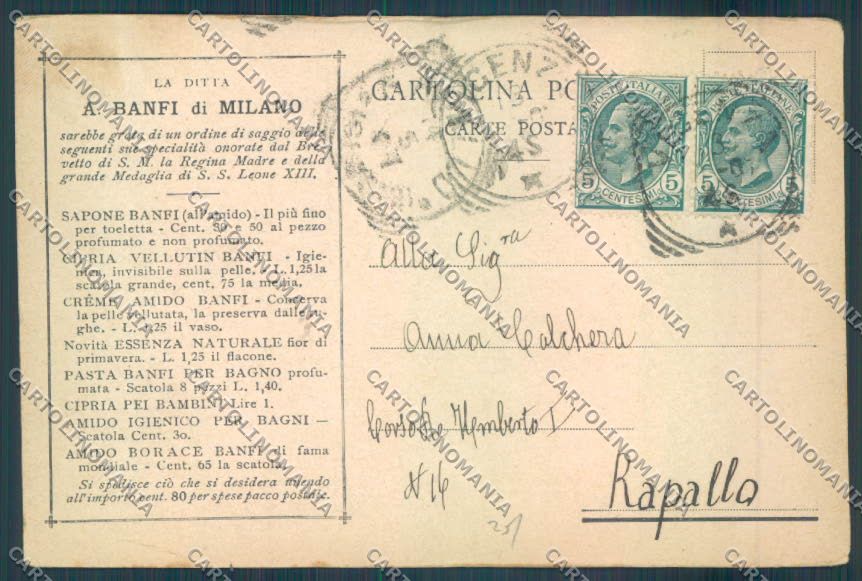 LA DITTA
A. BANFI di MILANO
sarebbe grata di un ordine di saggio delle
seguenti sue specialità onorate dal Bre-
vetto di S. M. la Regina Madre e della
grande Medaglia di S. S. Leone XIII.
SAPONE BANFI (all'amido) - Il più fino
per toeletta - Cent. 30 e 50 al pezzo
profumato e non profumato.
CIPRIA VELLUTIN BANFI - Igie-
nica, invisibile sulla pelle. - L. 1,25 la
scatola grande, cent. 75 la media.
CRÊME AMIDO BANFI - Conserva
la pelle vellutata, la preserva dalle ru-
ghe. - L. 1,25 il vaso.
Novità ESSENZA NATURALE fior di
primavera. - L. 1,25 il flacone.
PASTA BANFI PER BAGNO profu-
mata - Scatola 8 pezzi L. 1,40.
CIPRIA PEI BAMBINI Lire 1.
AMIDO IGIENICO PER BAGNI —
Scatola Cent. 30.
AMIDO BORACE BANFI di fama
mondiale - Cent. 65 la scatola.
Si spedisce ciò che si desidera unendo
all'importo cent. 80 per spese pacco postale.
CARTOLINA PO
CARTE POSTA
POSTE ITALIANE
5 5
CENTESIMI
POSTE ITALIANE
5 5
CENTESIMI
Alla Sigra
Anna Calchera
Corso Re Umberto I
N 16
Rapallo
CARTOLINOMANIA